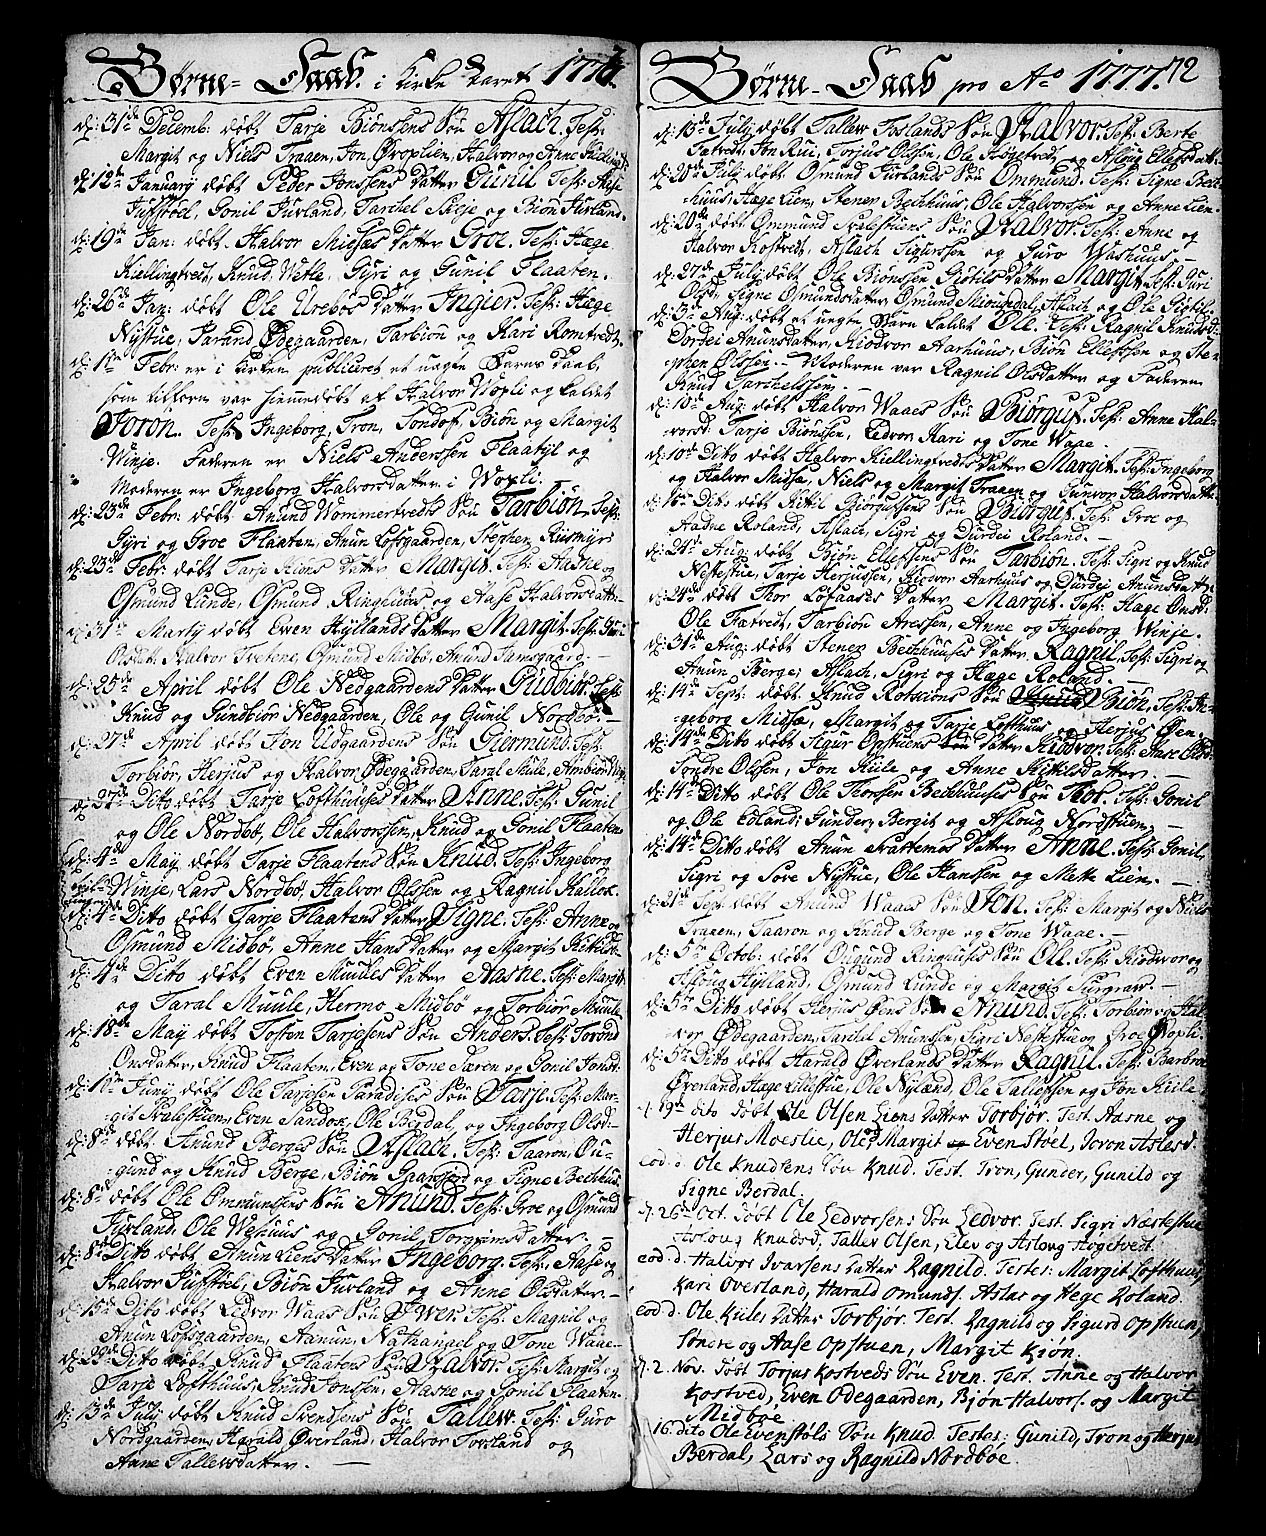 Børne-Daab. i Kirke Aaret 1777.
d: 31te Decemb: døbt Tarje Biønsens Søn Aslach. Test:
Margit og Niels Traaen, Jon Øroplien, Halvor og Anne Kiellingt
d: 12te January døbt Peder Jonssens Datter Gunil Test: Aase
Juffstøel, Gonil Juvland, Tarchel Skeje og Biøn Juvland.
d: 19de Jan: døbt Halvor Midsæs Datter Groe. Test: Hæge
Kiellingtvedt, Knud Vetle, Gyri og Gunil Flaaten.
d: 26de Jan: døbt Ole Urebøs Datter Ingier. Test: Hæge
Nystue, Tarand Ødegaarden, Tarbiøn og Kari Romtvedt,
d: 11te Febr: er i Kirken publiceret et uægte Barns Daab,
som tilforn var hiemmedøbt af Halvor Wopli og kaldet
Joron. Test: Ingeborg, Tron, Sondof, Biøn og Margit
Winje. Faderen er Niels Anderssen Flaatyl og
Moderen er Ingeborg Halvorsdatter i Wopli.
d: 23de Febr: døbt Anund Wommertvedts Søn Tarbiøn. Test:
Gyri og Groe Flaaten, Anun Lofsgaarden, Stephen Kiismyr
d: 23de Febr: døbt Tarje Kions Datter Margit. Test: Aadne og
Osmund Lunde, Osmund Ringhuus, og Aase Halvorsdatt:
d: 31te Marty døbt Even Hyllands Datter Margit. Test: Guri
Olsdatt: Halvor Tvetene, Osmund Midbø, Anund Jamsgaard.
d: 25de April døbt Ole Nedgaardens Datter Gudbiør, Test:
Knud og Gundbiør Nedgaarden, Ole og Gunil Nordbø. —
d: 27de April døbt Jon Udgaardens Søn Giermund. Test:
Torbiør, Herjus og Halvor Ødegaarden, Taral Mule, Ambiør
d: 27de Ditto døbt Tarje Lofthuuses Datter Anne. Test: Gunil
og Ole Nordbø, Ole Halvorssen, Knud og Gonil Flaaten
d: 4de May døbt Tarje Flaatens Søn Knud. Test: Ingeborg
Winje, Lars Nordbø, Halvor Olssen og Ragnil Kallok.
d: 4de Ditto døbt Tarje Flaatens Datter Signe. Test: Anne og
Osmund Midbø, Anne Hans Datter og Margit Kittilsd:
d: 4de Ditto døbt Even Muules Datter Aasne. Test: Margit
og Taral Muule, Hermo Midbø og Torbiør Muule
d: 18de May døbt Tosten Tarjesens Søn Anders. Test: Torond
Onsdatter, Knud Flaaten, Even og Tone Særen og Gonil Jonsd:
d: 1te Juny døbt Ole Tarjesen Paradises Søn Tarje. Test: Mar-
git Svalestuen, Even Sandok, Ole Berdal, og Ingeborg Olsd:
d: 8de døbt Anund Berges Søn Aslach. Test: Taaron, Ou-
gund og Knud Berge, Biøn Gaarsjord og Signe Bechhuus
d: 8de døbt Ole Ommundsens Søn Anund. Test: Groe og Osmund
Juvland. Ole Wehuus og Gonil Torgrimsdatter. —
d: 8de Ditto døbt Anun Liens Datter Ingeborg. Test: Aase og
Halvor Juffstøel, Biøn Juvland og Anne Olsdatter.
d: 15de Ditto døbt Ledvor Waas Søn Iwer. Test: Magnil og
Anun Lofsgaarden, Aamun, Nathanael og Tone Waae.
d: 29de Ditto døbt Knud Flaatens Søn Halvor. Test: Margit og
Tarje Lofthuus, Knud Jonssen, Aasne og Gonil Flaaten.
d: 13de July døbt Knud Svendsens Søn Tallew. Test: Guro
Nordgaarden, Harald Øverland, Halvor Forsland og
Anne Tallewsdatter. —
Børne-Daab pro Ao 1777. 72
d: 13de July døbt Tallew Foslands Søn Halvor. Test: Berte
Fætvedt, Jon Rui, Torjus Olssen, Ole Høgetvedt og Asloug Ellefsdatt.
d: 20de July døbt Osmund Juvlands Søn Ommund. Test: Signe Bech-
huus, Hæge Lien, Stener Bechhuus, Ole Halvorssen og Anne Lien.
d: 20de døbt Ommund Svalestuens Søn Halvor. Test: Anne og
Halvor Kostvedt, Aslach Sigurssen og Guro Washuus. —
d: 27de July døbt Ole Biønssen Giøtils Datter Margit. Test: Guri
Olsd, Signe Osmundsdatter, Osmund Mandal, Aslach og Ole Giøtil
d: 3de Aug: døbt et uægte Barn kaldet Ole. Test: Ragnil Knudsd:
Dordei Amunsdatter, Kiødvor Aarhuus, Biøn Ellefssen og Ste-
phen Olssen. Moderen var Ragnil Olsdatter og Faderen
Knud Tarchelssen. —
d: 10de Aug: døbt Halvor Waaes Søn Biørguf. Test: Anne Hal-
vorsd: Tarje Biønssen, Ledvor, Kari og Tone Waae.
d: 10de Ditto døbt Halvor Kiellingtvedts Datter Margit. Test: Ingeborg
og Halvor Midsæ, Niels og Margit Traaen og Gunvor Halvorsdatter
d: 10de Ditto døbt Kittil Biørgufsens Søn Biørguf. Test: Groe og
Aadne Roland, Aslach, Sigri og Durdei Roland. —
d: 24de Aug: døbt Biøn Ellefsens Søn Tarbiøn. Test: Sigri og Knud
Nestestue, Tarje Herjussen, Kiødvor Aarhuus og Durdei Amunsdatter
d: 24de døbt Thor Lofaases Datter Margit. Test: Hæge Onsd:
Ole Fætvedt, Tarbiøn Aressen, Anne og Ingeborg Winje.
d: 31de Aug: døbt Stener Bechhuuses Datter Ragnil. Test: Sigri og
Amun Berge, Aslach, Sigri og Hæge Roland. —
d: 14de Sept: døbt Knud Rotkions Søn Biøn, Test: In-
geborg Midsæ, Margit og Tarje Lofthuus og Herjus Øen.
d: 14de Ditto døbt Sigur Opstuens Datter Kiødvor. Test: Anne Olsd:
Sondre Olssen, Jon Kiile og Anne Kittilsdatter. —
d: 14de Ditto døbt Ole Thorssen Bechhuuses Søn Thor. Test: Gonil
og Ole Edland, Gunder, Bergit og Asloug Nordstuen. —
d: 14de Ditto døbt Anun Svattemos Datter Anne. Test: Gonil,
Sigri og Tore Nystue, Ole Hanssen og Mette Lien. —
d: 21de Sept: døbt Amund Waaes Søn Jon. Test: Margit og Niels
Traaen, Taaron og Knud Berge og Tone Waae. —
d: 5te Octob: døbt Ougund Ringhuses Søn Ole. Test: Kiødvor og
Asloug Hylland, Osmund Lunde og Margit Furgraw. —
d: 5te Ditto døbt Herjus Øens Søn Anund. Test: Torbiør og Hal-
vor Ødegaarden, Tarchel Amunssen, Sigri Nestestue og Groe Wopli.
d: 5te Ditto døbt Harald Øverlands Datter Ragnil. Test: Barbro
Øverland, Hæge Lillestue, Ole Nyland, Ole Tallefssen og Jon Kiile
d. 19de dito døbt Ole Olsen Liens Datter Torbjør. Test. Aasne og
Herjus Moeslie, Ole og Margit Even Støel, Joron Aslaksd
eod. d. Ole Knudsens Søn Knud. Test. Tron, Gunder, Gunild og
Signe Berdal.
d. 26de Oct. døbt Ole Ledvorsens Søn Ledvor. Test. Sigri Næstestue
Asloug Knudsd, Tallev Olsen, Elev og Asloug Høgetvedt.
eod. d. Halvor Ivarsens Datter Ragnild. Testes: Margit Lofthuus,
Kari Overland, Harald Omunds. Aslac og Hege Roland
eod d. Ole Kiiles Datter Torbjør. Test. Ragnild og Sigurd Opstuen,
Sondre og Aase Opstuen, Margit Kjøn.
d. 2. Nov. døbt Torjus Kostveds Søn Even. Test. Anne og Halvor
Kostved, Even Odegaarden, Bjøn Halvors. og Margit
Midbøe
16. dito Ole Evenstøls Søn Knud. Testes: Gunild, Tron og Herjus
Berdal, Lars og Ragnild Nordbøe.